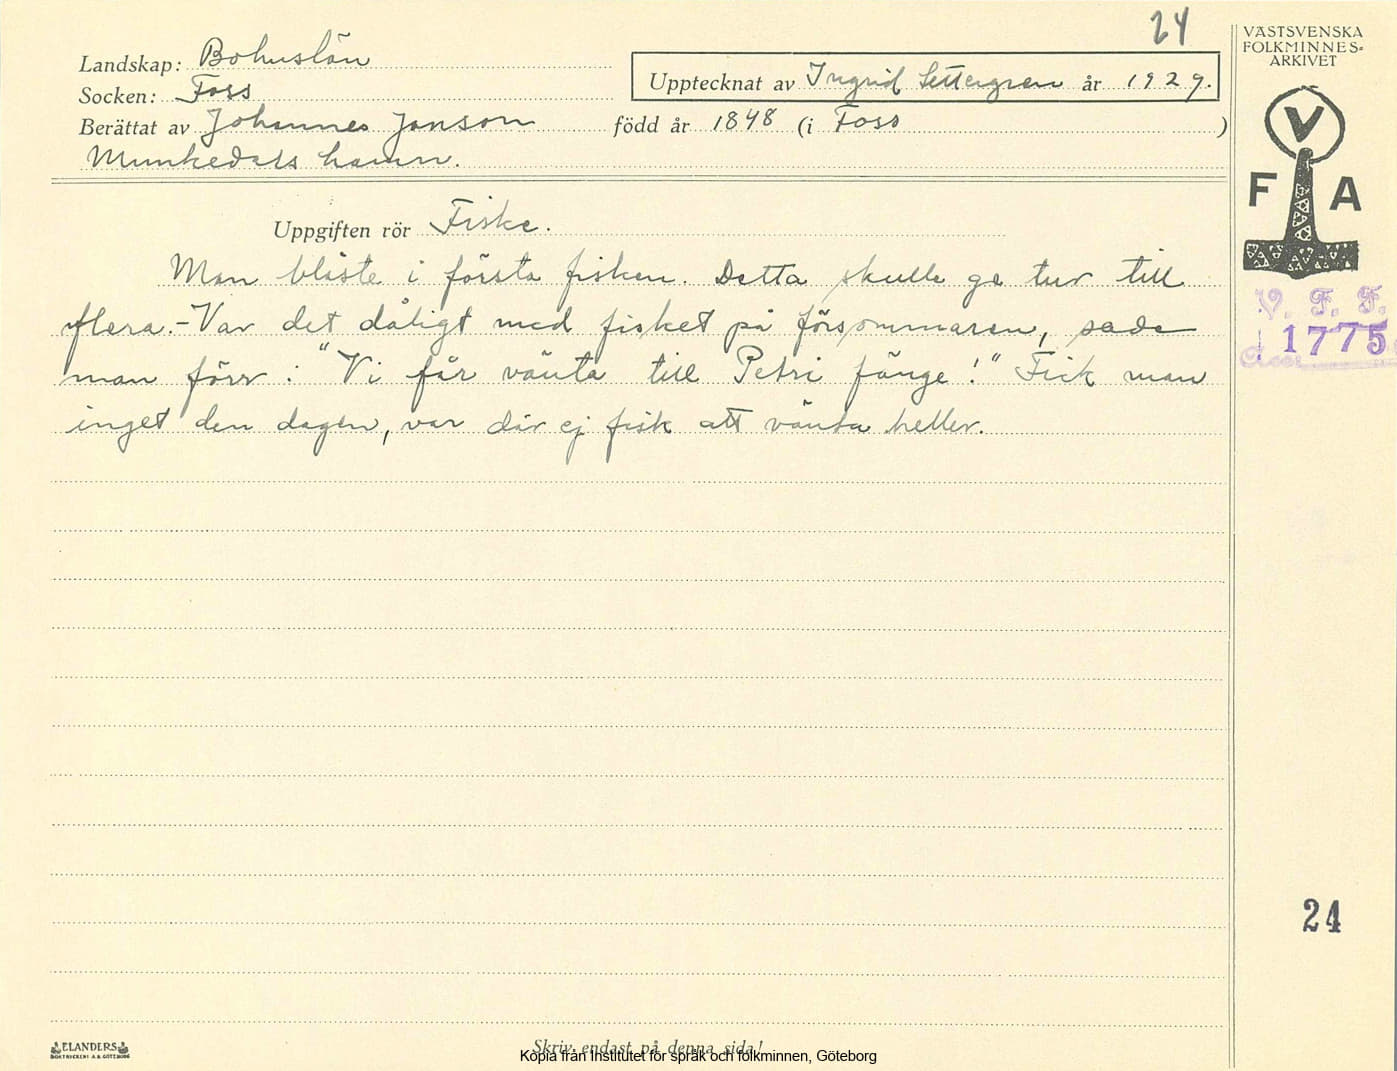 24
VÄSTSVENSKA
FOLKMINNES-
ARKIVET
Landskap: Bohuslän
Socken: Foss
Upptecknat av Ingrid Settergren år 1929.
Berättat av Johannes Janson född år 1848 (i Foss )
Munkedals hamn.
V
F A
Uppgiften rör Fiske.
Man blåste i första fisken. Detta skulle ge tur till
flera.- Var det dåligt med fisket på försommaren, sade
man förr: "Vi får vänta till Petri fänge!" Fick man
inget den dagen, var där ej fisk att vänta heller.
V. F. F.
1775
24
ELANDERS
BOKTRYCKERI A.B. GÖTEBORG
Skriv endast på denna sida!
Kopia från Institutet för språk och folkminnen, Göteborg